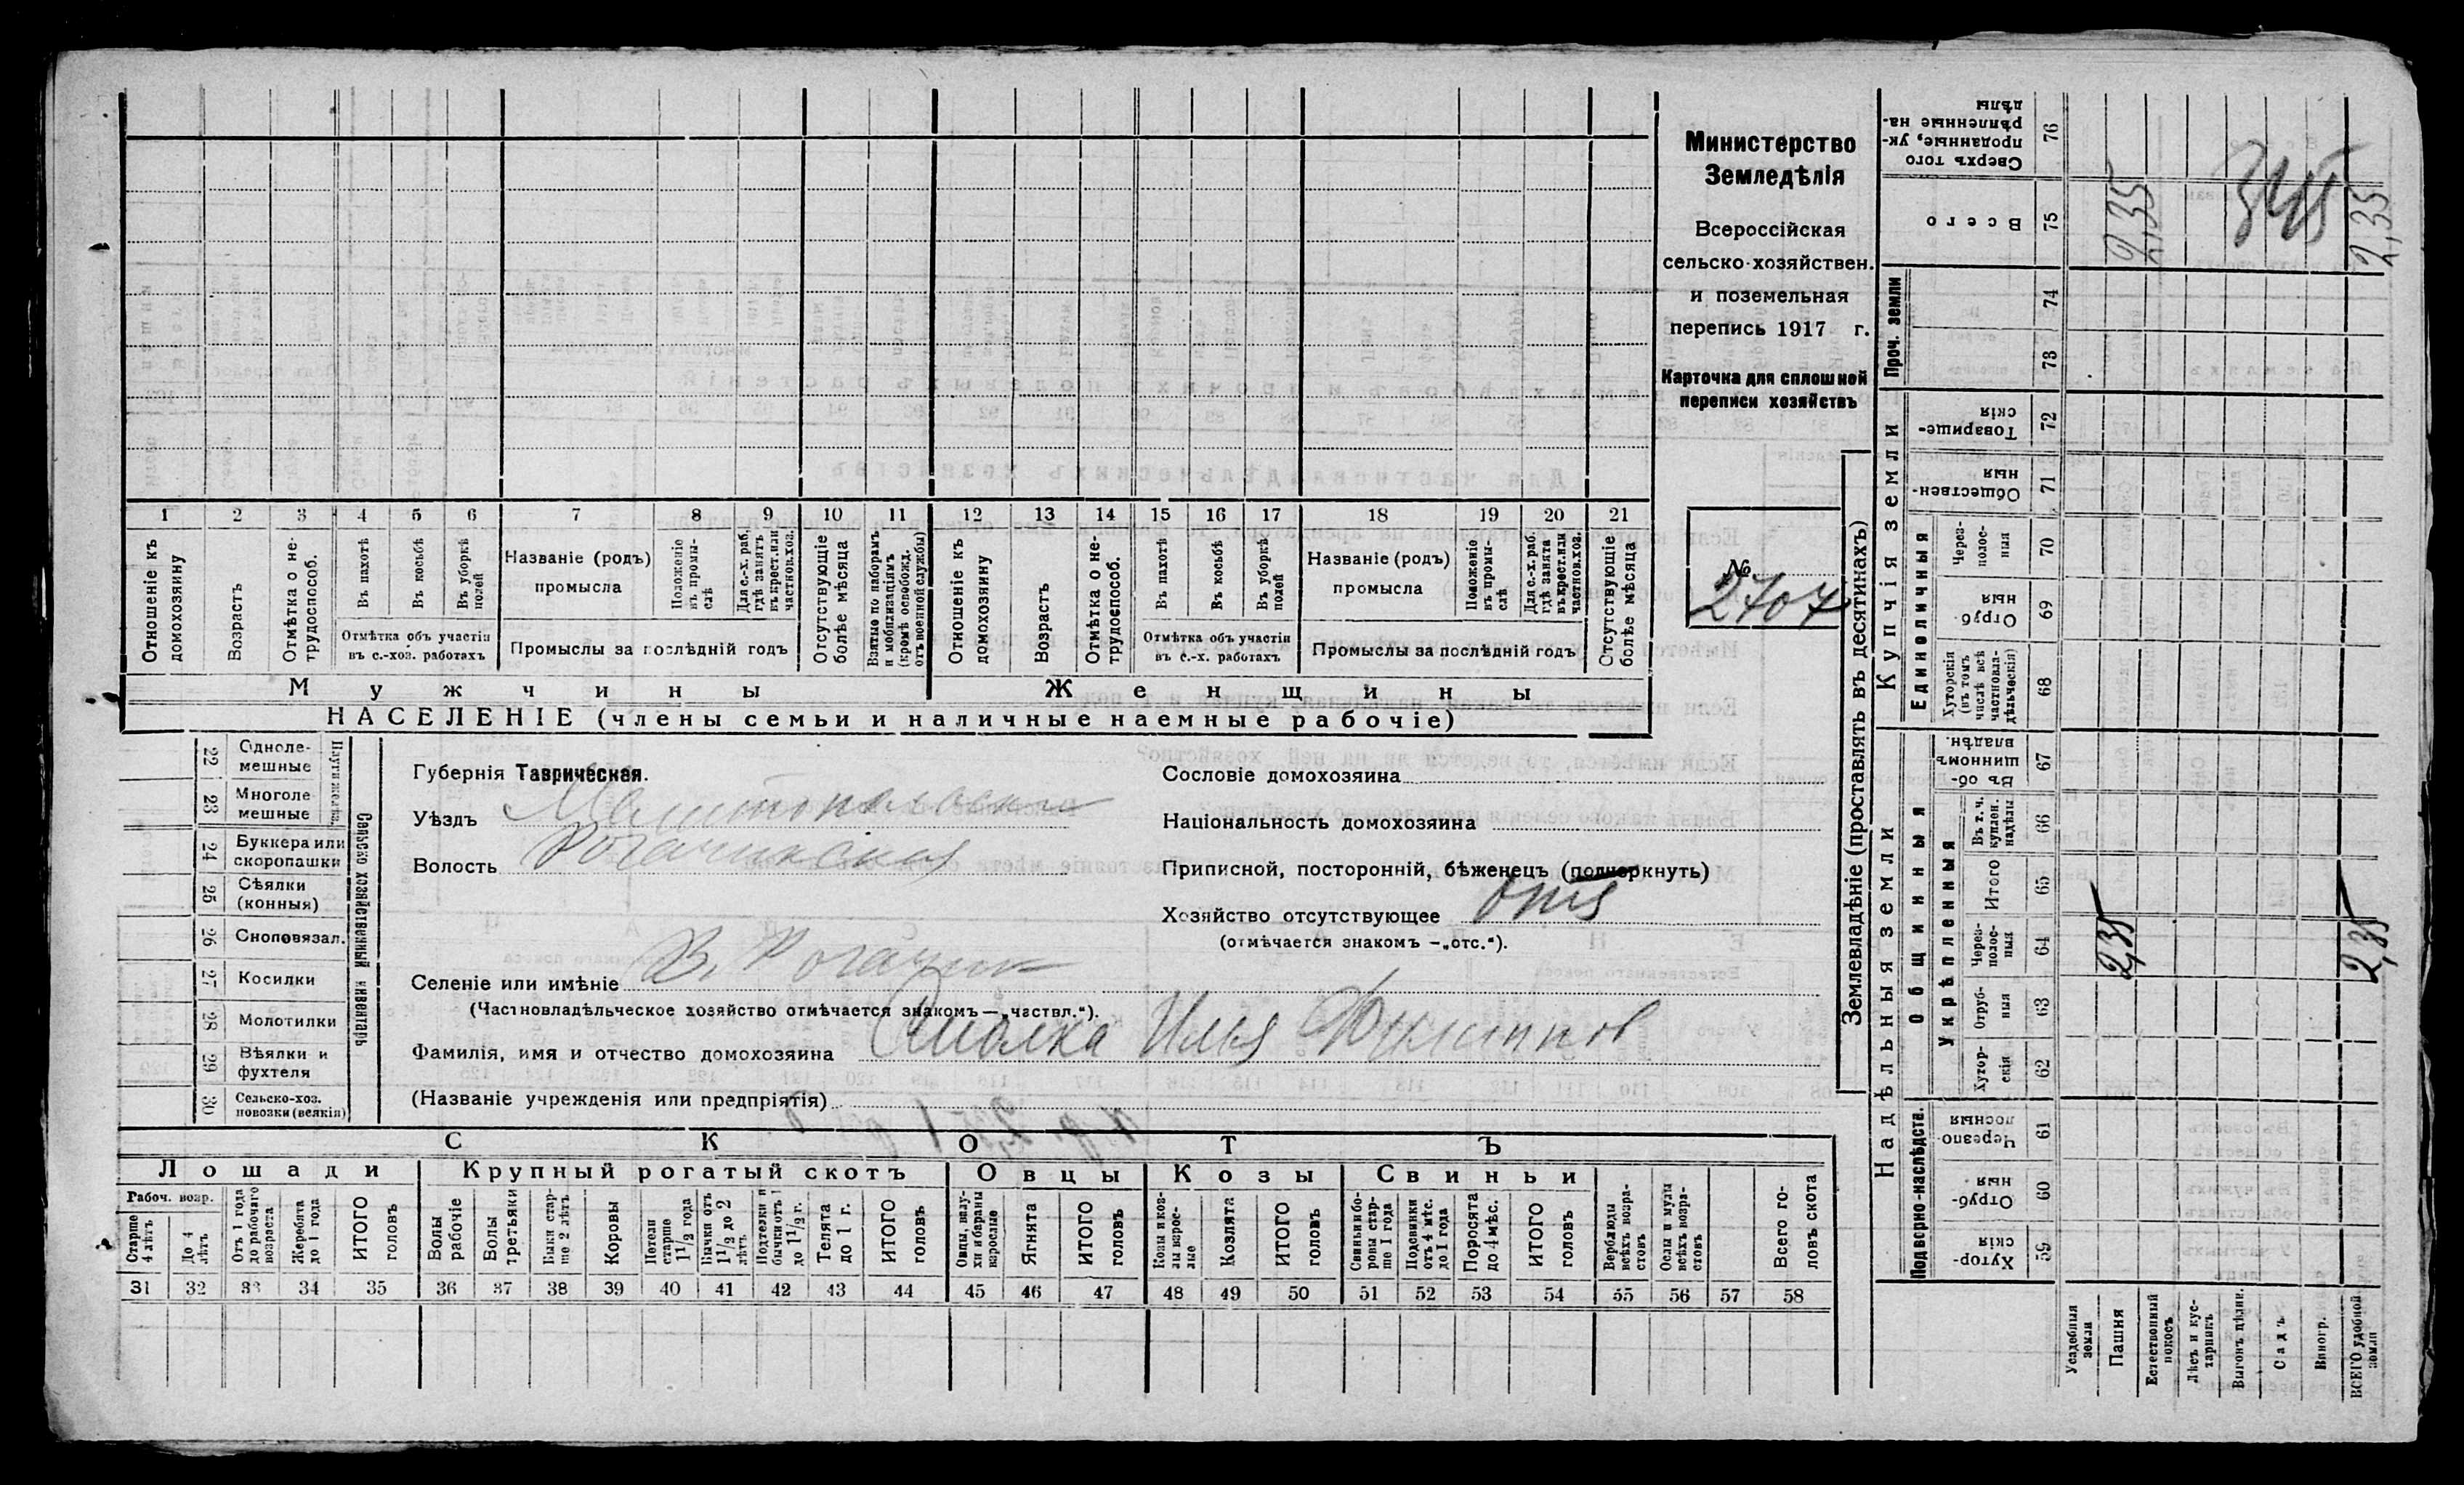 Министерство
Земледѣлія
Всероссійская
сельско-хозяйствен.
и поземельная
перепись 1917 г.
Карточка для сплошной
переписи хозяйствъ
№
2707
1 2 3 4 5 6 7 8 9 10 11 12 13 14 15 16 17 18 19 20 21
Отношеніе къ домохозяину
Возрастъ
Отмѣтка о нетрудоспособ.
Въ пахотѣ
Въ косьбѣ
Въ уборкѣ полей
Отмѣтка объ участіи
въ с.-хоз. работахъ
Названіе (родъ)
промысла
Положеніе въ промыслѣ
Для с.-х. раб. гдѣ занятъ въ крест. или частнов. хоз.
Промыслы за послѣдній годъ
Отсутствующіе болѣе мѣсяца
Взятые по наборамъ и мобилизаціямъ (кромѣ освобожд. отъ военной службы)
Отношеніе къ домохозяину
Возрастъ
Отмѣтка о нетрудоспособ.
Въ пахотѣ
Въ косьбѣ
Въ уборкѣ полей
Отмѣтка объ участіи
въ с.-х. работахъ
Названіе (родъ)
промысла
Положеніе въ промыслѣ
Для с.-х. раб. гдѣ занята въ крест. или частнов. хоз.
Промыслы за послѣдній годъ
Отсутствующіе болѣе мѣсяца
Мужчины Женщины
НАСЕЛЕНІЕ (члены семьи и наличные наемные рабочіе)
22 Одноле-
мешные
23 Многоле
мешные
Плуги желѣз.
24 Буккера или
скоропашки
25 Сѣялки
(конныя)
26 Сноповязал.
27 Косилки
28 Молотилки
29 Вѣялки и
фухтеля
30 Сельско-хоз.
повозки (всякія)
Сельско хозяйственный инвентарь
Губернія Таврическая.
Уѣздъ Мелитопольскій
Волость Рогачикская
Сословіе домохозяина
Національность домохозяина
Приписной, посторонній, бѣженецъ (подчеркнуть)
Хозяйство отсутствующее отс
(отмѣчается знакомъ —„отс.“).
Селеніе или имѣніе В. Рогачик
(Частновладѣльческое хозяйство отмѣчается знакомъ—„частвл.“).
Фамилія, имя и отчество домохозяина Смалка Илья Филиппов
(Названіе учрежденія или предпріятія)
СКОТЪ
Лошади Крупный рогатый скотъ Овцы Козы Свиньи
Рабоч. возр.
Старше 4 лѣтъ
До 4 лѣтъ
Отъ 1 года до рабочаго возраста
Жеребята до 1 года
ИТОГО головъ
Волы рабочіе
Волы третьяки
Быки старше 2 лѣтъ
Коровы
Нетели старше 1 1/2 года
Бычки отъ 1 1/2 до 2 лѣтъ
Подтелки и бычки отъ 1 до 1 1/2 г.
Телята до 1 г.
ИТОГО головъ
Овцы, валухи и бараны взрослые
Ягнята
ИТОГО головъ
Козы и козлы взрослые
Козлята
ИТОГО головъ
Свиньи и боровы старше 1 года
Подсвинки отъ 4 мѣс. до 1 года
Поросята до 4 мѣс.
ИТОГО головъ
Верблюды всѣхъ возрастовъ
Ослы и мулы всѣхъ возрастовъ
Всего головъ скота
31 32 33 34 35 36 37 38 39 40 41 42 43 44 45 46 47 48 49 50 51 52 53 54 55 56 57 58
Землевладѣніе (проставлять въ десятинахъ)
Надѣльныя земли
Купчія земли
Проч. земли
Подворно-наслѣдств.
Общинныя
Укрѣпленныя
Единоличныя
Сверхъ того проданные, укрѣпленные надѣлы 76
Всего 75
74
73
Товарищескія 72
Общественныя 71
Черезполосныя 70
Отрубныя 69
Хуторскія (въ томъ числѣ всѣ частновладѣльческія) 68
Въ общинномъ владѣн. 67
Въ т. ч. куплен. надѣлы 66
Итого 65
Черезполосныя 64
Отрубныя 63
Хуторскія 62
Черезполосныя 61
Отрубныя 60
Хуторскія 59
2,35
345
2,35
2,35
2,35
Усадебныя земли
Пашня
Естественный покосъ
Лѣсъ и кустарникъ
Выгонъ цѣлин.
Садъ
Виногр.
ВСЕГО удобной земли